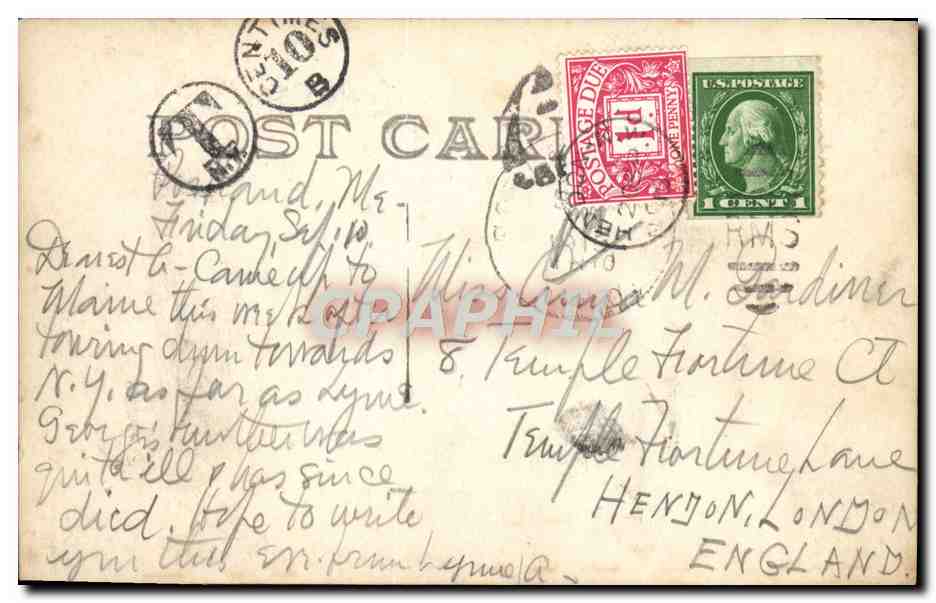 CENTIMES
10
B
T
POST CARD
POSTAGE DUE
1d
ONE PENNY
U.S. POSTAGE
1 CENT 1
Portland, Me.
Friday, Sep. 10
Dearest A- Came up to
Maine this week after
touring down towards
N.Y. as far as Lyme.
George's mother was
quite ill & has since
died. Hope to write
you this from Lyme A.
Miss Anna M. Gardiner
8, Temple Fortune Ct
Temple Fortune Lane
HENDON, LONDON
ENGLAND.
CPARPHIL